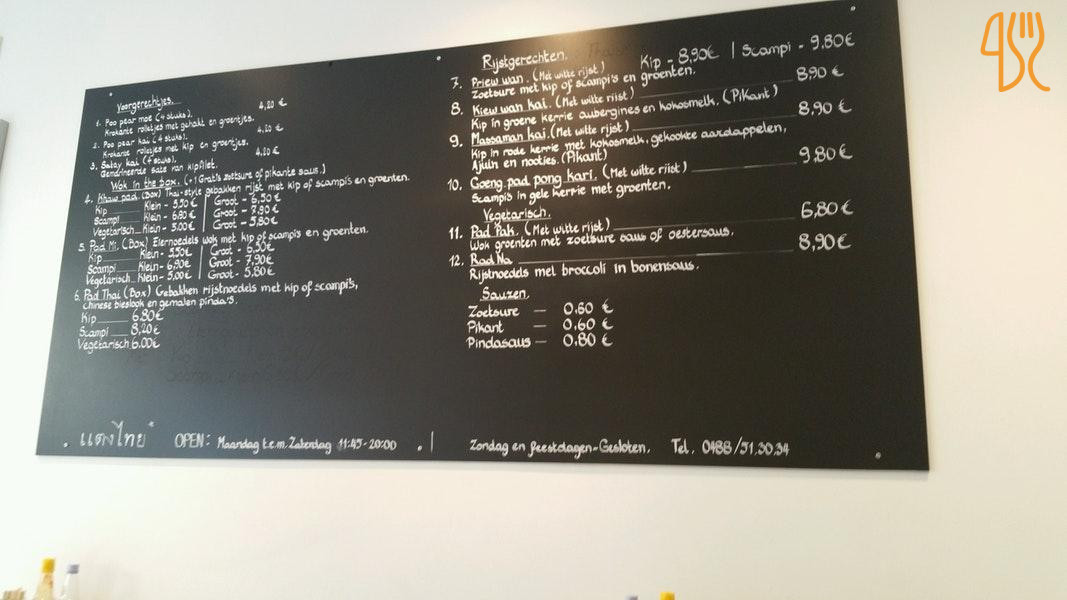 Voorgerechtjes.
1. Poo pear moe (4 stuks). 4,20 €
Krokante roletjes met gehakt en groentjes.
2. Poo pear kai (4 stuks). 4,20 €
Krokante roletjes met kip en groentjes.
3. Satay kai (4 stuks). 4,20 €
Gemarineerde sate van kipfilet.
Wok in the box. (+1 Gratis zoetsure of pikante saus.)
4. Khaw pad. (Box) Thai-style gebakken rijst met kip of scampi's en groenten.
Kip Klein - 5,50€ | Groot - 6,50€
Scampi Klein - 6,80€ | Groot - 7,90€
Vegetarisch Klein - 5,00€ | Groot - 5,80€
5. Pad Mi. (Box) Eiernoedels wok met kip of scampi's en groenten.
Kip Klein - 5,50€ | Groot - 6,50€
Scampi Klein - 6,90€ | Groot - 7,90€
Vegetarisch Klein - 5,00€ | Groot - 5.80€
6. Pad Thai (Box) Gebakken rijstnoedels met kip of scampi's,
chinese bieslook en gemalen pinda's.
Kip 6.80€
Scampi 8,20€
Vegetarisch 6.00€
Rijstgerechten.
Kip - 8,90€ | Scampi - 9,80€
7. Priew wan. (Met witte rijst)
Zoetsure met kip of scampi's en groenten.
8. Kiew wan kai. (Met witte rijst) 8,90 €
Kip in groene kerrie aubergines en kokosmelk. (Pikant)
9. Massaman kai. (Met witte rijst) 8,90 €
Kip in rode kerrie met kokosmelk, gekookte aardappelen,
Ajuin en nootjes. (Pikant)
10. Goeng pad pong kari. (Met witte rijst) 9.80€
Scampis in gele kerrie met groenten.
Vegetarisch.
11. Pad Pak. (Met witte rijst) 6,80€
Wok groenten met zoetsure saus of oestersaus.
12. Rad Na 8,90€
Rijstnoedels met broccoli in bonensaus.
Sauzen.
Zoetsure — 0,60 €
Pikant — 0,60 €
Pindasaus — 0,80 €
แตงไทย OPEN: Maandag t.e.m. Zaterdag 11:45-20:00 | Zondag en feestdagen - Gesloten. Tel. 0488/51.30.34